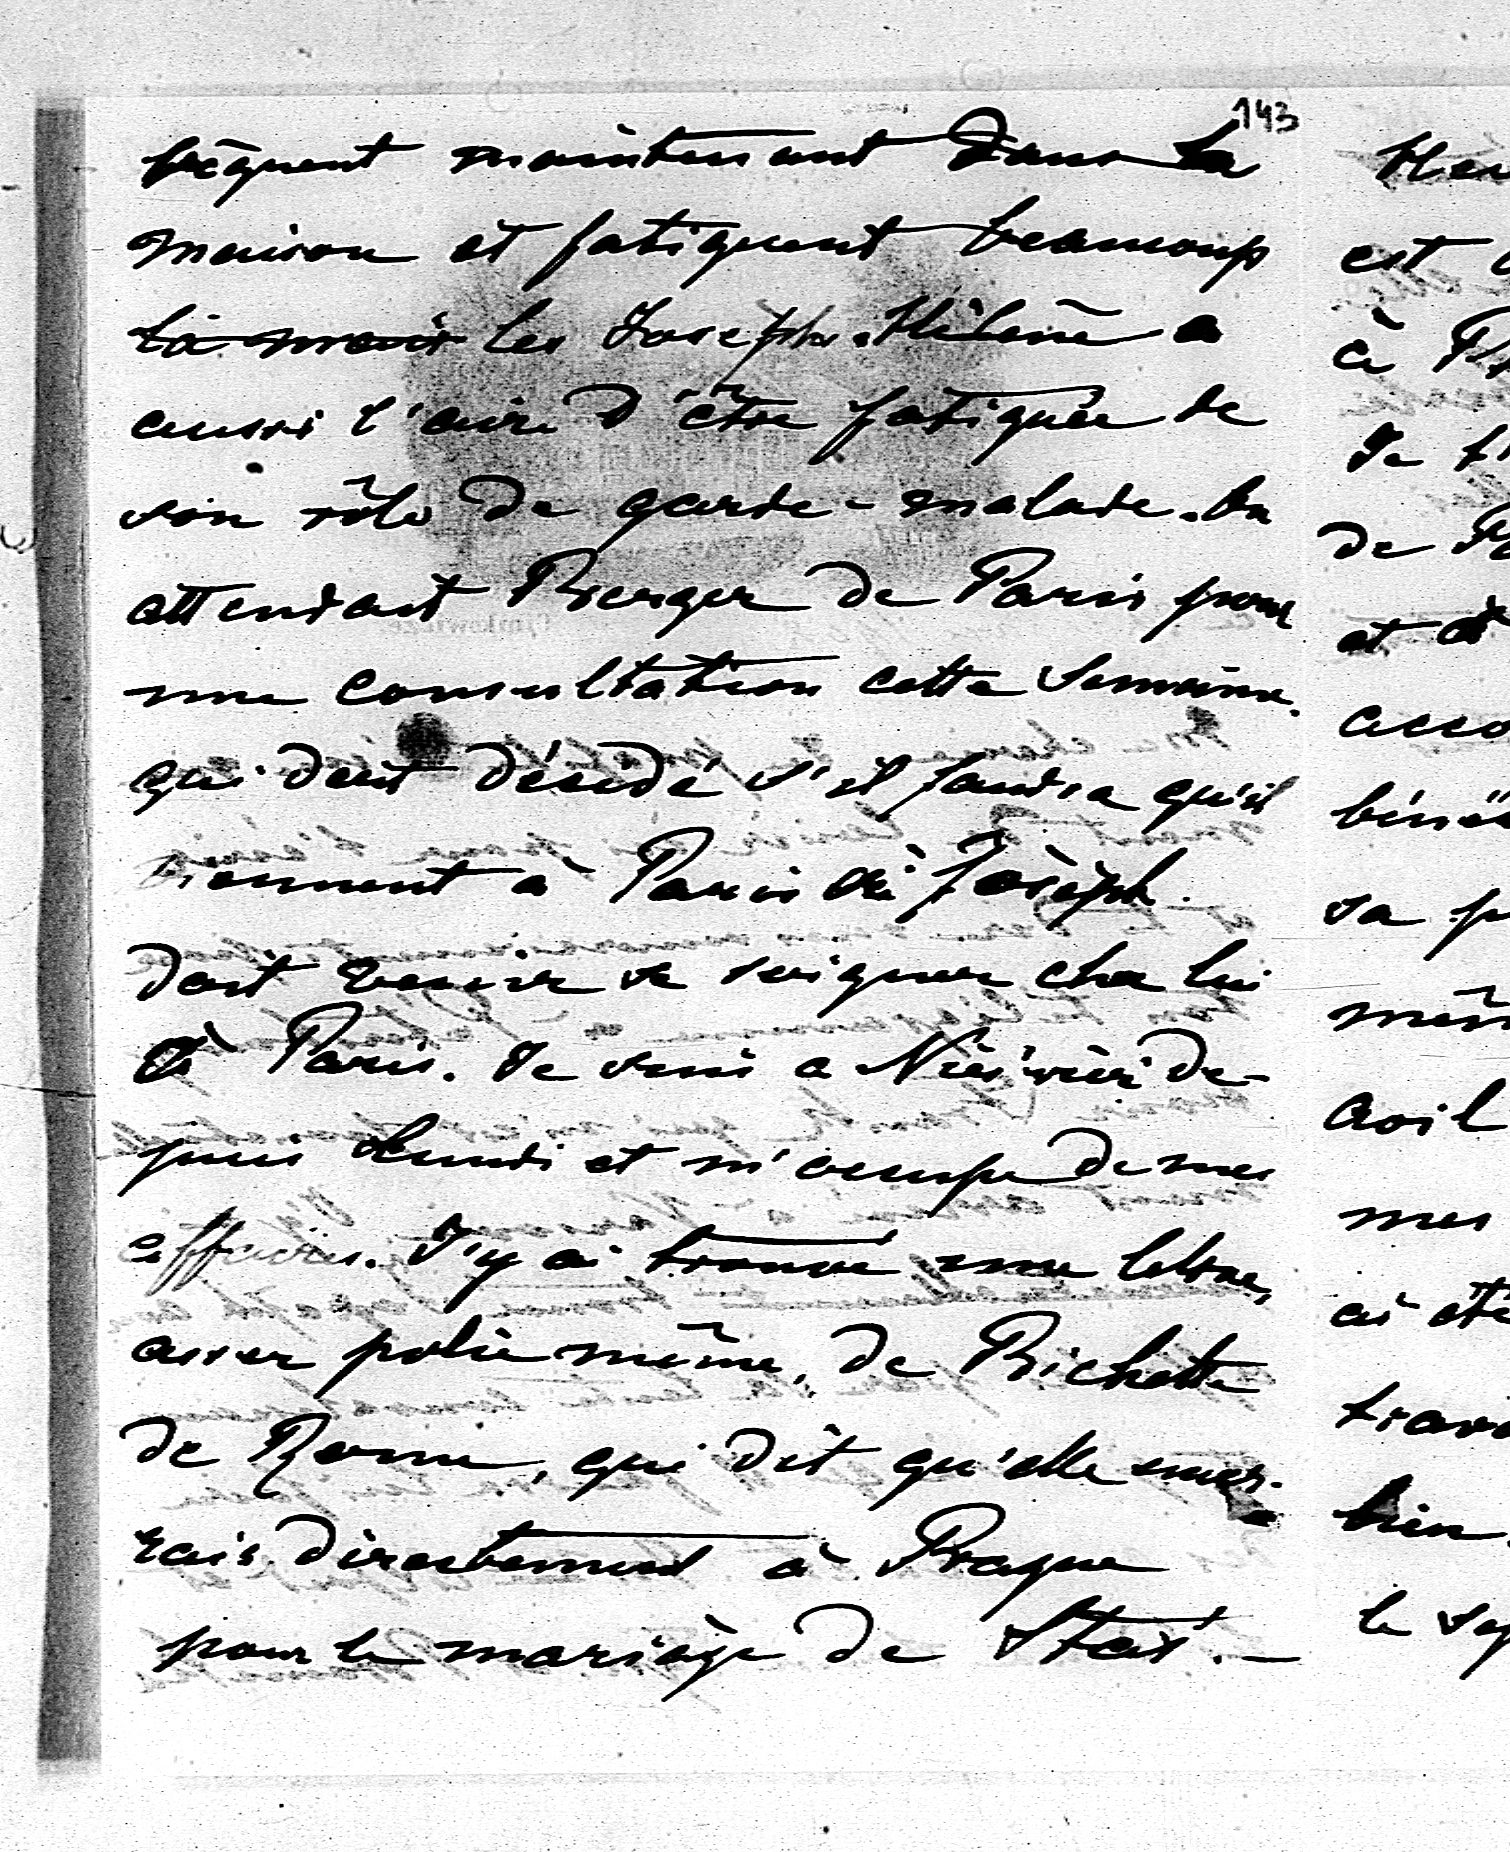 143
fréquent maintenant dans la
maison et fatiguent beaucoup
la les Joseph. Hélène a
aussi l'aire d'être fatiguée de
son rôle de garde-malade. On
attendait Berger de Paris pour
une consultation cette semaine.
qui doit décidé s'il faudra qu'il
viennent à Paris où Joseph.
doit venir se soigner chez lui
à Paris. Je suis a de-
puis Lundi et m'occupe de mes
affaires. J'y ai trouvé une lettre,
assez polie même, de Bichette
de Rome, qui dit qu'elle
rais directement à Prague
pour le mariage de Staś. —
est
à
Je
de
et
va
mes
ai été
bien
le